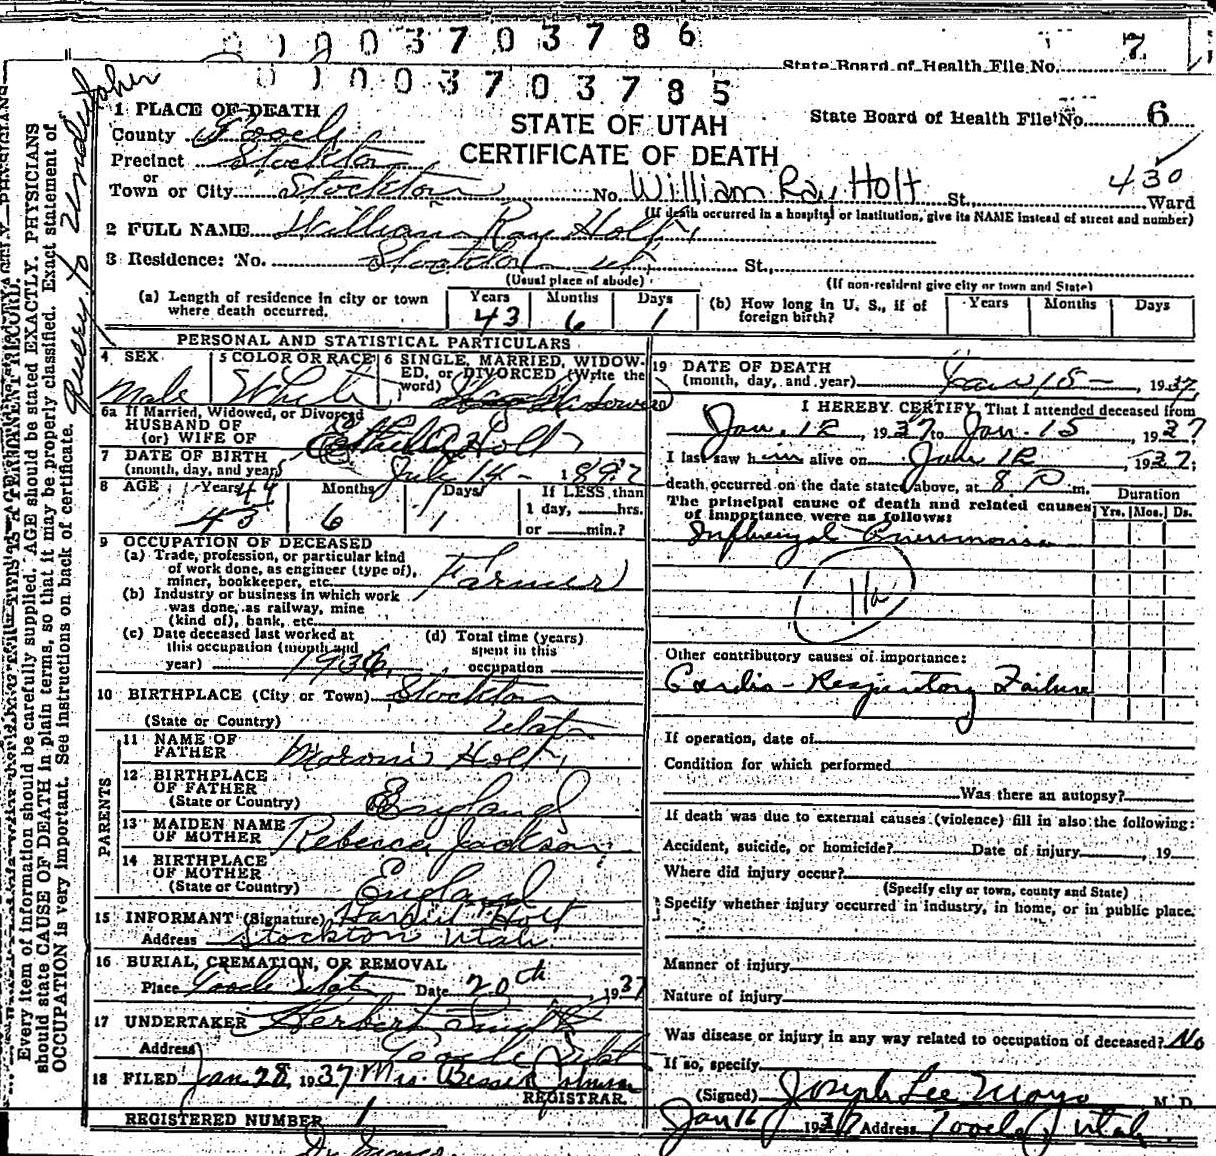 0 1 0 0 3 7 0 3 7 8 6
7
State Board of Health File No.
0 1 0 0 3 7 0 3 7 8 5
1 PLACE OF DEATH
STATE OF UTAH
State Board of Health File No. 6
County Tooele
CERTIFICATE OF DEATH
Precinct Stockton
or
Town or City Stockton No. William Ray Holt St., 430 Ward
(If death occurred in a hospital or institution, give its NAME instead of street and number)
2 FULL NAME William Ray Holt
3 Residence: No. Stockton Ut. St.,
(Usual place of abode)
(If non-resident give city or town and State)
(a) Length of residence in city or town where death occurred. Years 43 Months 6 Days 1
(b) How long in U. S., if of foreign birth? Years Months Days
PERSONAL AND STATISTICAL PARTICULARS
4 SEX Male
5 COLOR OR RACE White
6 SINGLE, MARRIED, WIDOWED, or DIVORCED (Write the word) Widowed
6a If Married, Widowed, or Divorced
HUSBAND OF
(or) WIFE OF Holt
7 DATE OF BIRTH
(month, day, and year) July 14 - 1892
8 AGE Years 44 43 Months 6 Days 1
If LESS than 1 day, hrs. or min.?
9 OCCUPATION OF DECEASED
(a) Trade, profession, or particular kind of work done, as engineer (type of), miner, bookkeeper, etc. Farmer
(b) Industry or business in which work was done, as railway, mine (kind of), bank, etc.
(c) Date deceased last worked at this occupation (month and year) 1936
(d) Total time (years) spent in this occupation
10 BIRTHPLACE (City or Town) Stockton
(State or Country) Utah
PARENTS
11 NAME OF FATHER Moroni Holt
12 BIRTHPLACE OF FATHER
(State or Country) England
13 MAIDEN NAME OF MOTHER Rebecca Jackson
14 BIRTHPLACE OF MOTHER
(State or Country) England
15 INFORMANT (Signature) Holt
Address Stockton Utah
16 BURIAL, CREMATION, OR REMOVAL
Place Tooele Utah Date 20th 1937
17 UNDERTAKER Herbert
Address Tooele Utah
18 FILED Jan 28, 1937 Mrs. Bessie
REGISTRAR.
REGISTERED NUMBER 1
19 DATE OF DEATH
(month, day, and year) Jan 15 - , 1937
20 I HEREBY CERTIFY, That I attended deceased from
Jan. 12, 1937 to Jan. 15, 1937
I last saw him alive on Jan 12, 1937;
death occurred on the date stated above, at 8 P m.
The principal cause of death and related causes of importance were as follows:
Duration
Yrs. Mos. Ds.
Influenzal Pneumonia
11a
Other contributory causes of importance:
Cardio-Respiratory Failure
If operation, date of
Condition for which performed
Was there an autopsy?
If death was due to external causes (violence) fill in also the following:
Accident, suicide, or homicide? Date of injury , 19
Where did injury occur?
(Specify city or town, county and State)
Specify whether injury occurred in industry, in home, or in public place.
Manner of injury
Nature of injury
Was disease or injury in any way related to occupation of deceased? No
If so, specify
(Signed) Joseph Lee Mayo M. D.
Jan 16 1937 Address Tooele, Utah
Every item of information should be carefully supplied. AGE should be stated EXACTLY. PHYSICIANS
should state CAUSE OF DEATH in plain terms, so that it may be properly classified. Exact statement of
OCCUPATION is very important. See instructions on back of certificate.
Query to